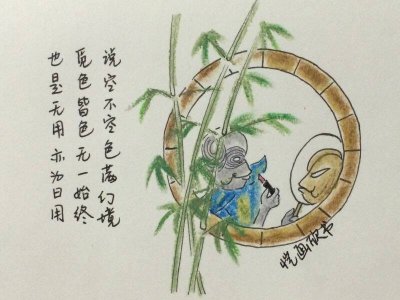 说空不空色满幻境
觅色皆色无一始终
也是无用亦为日用